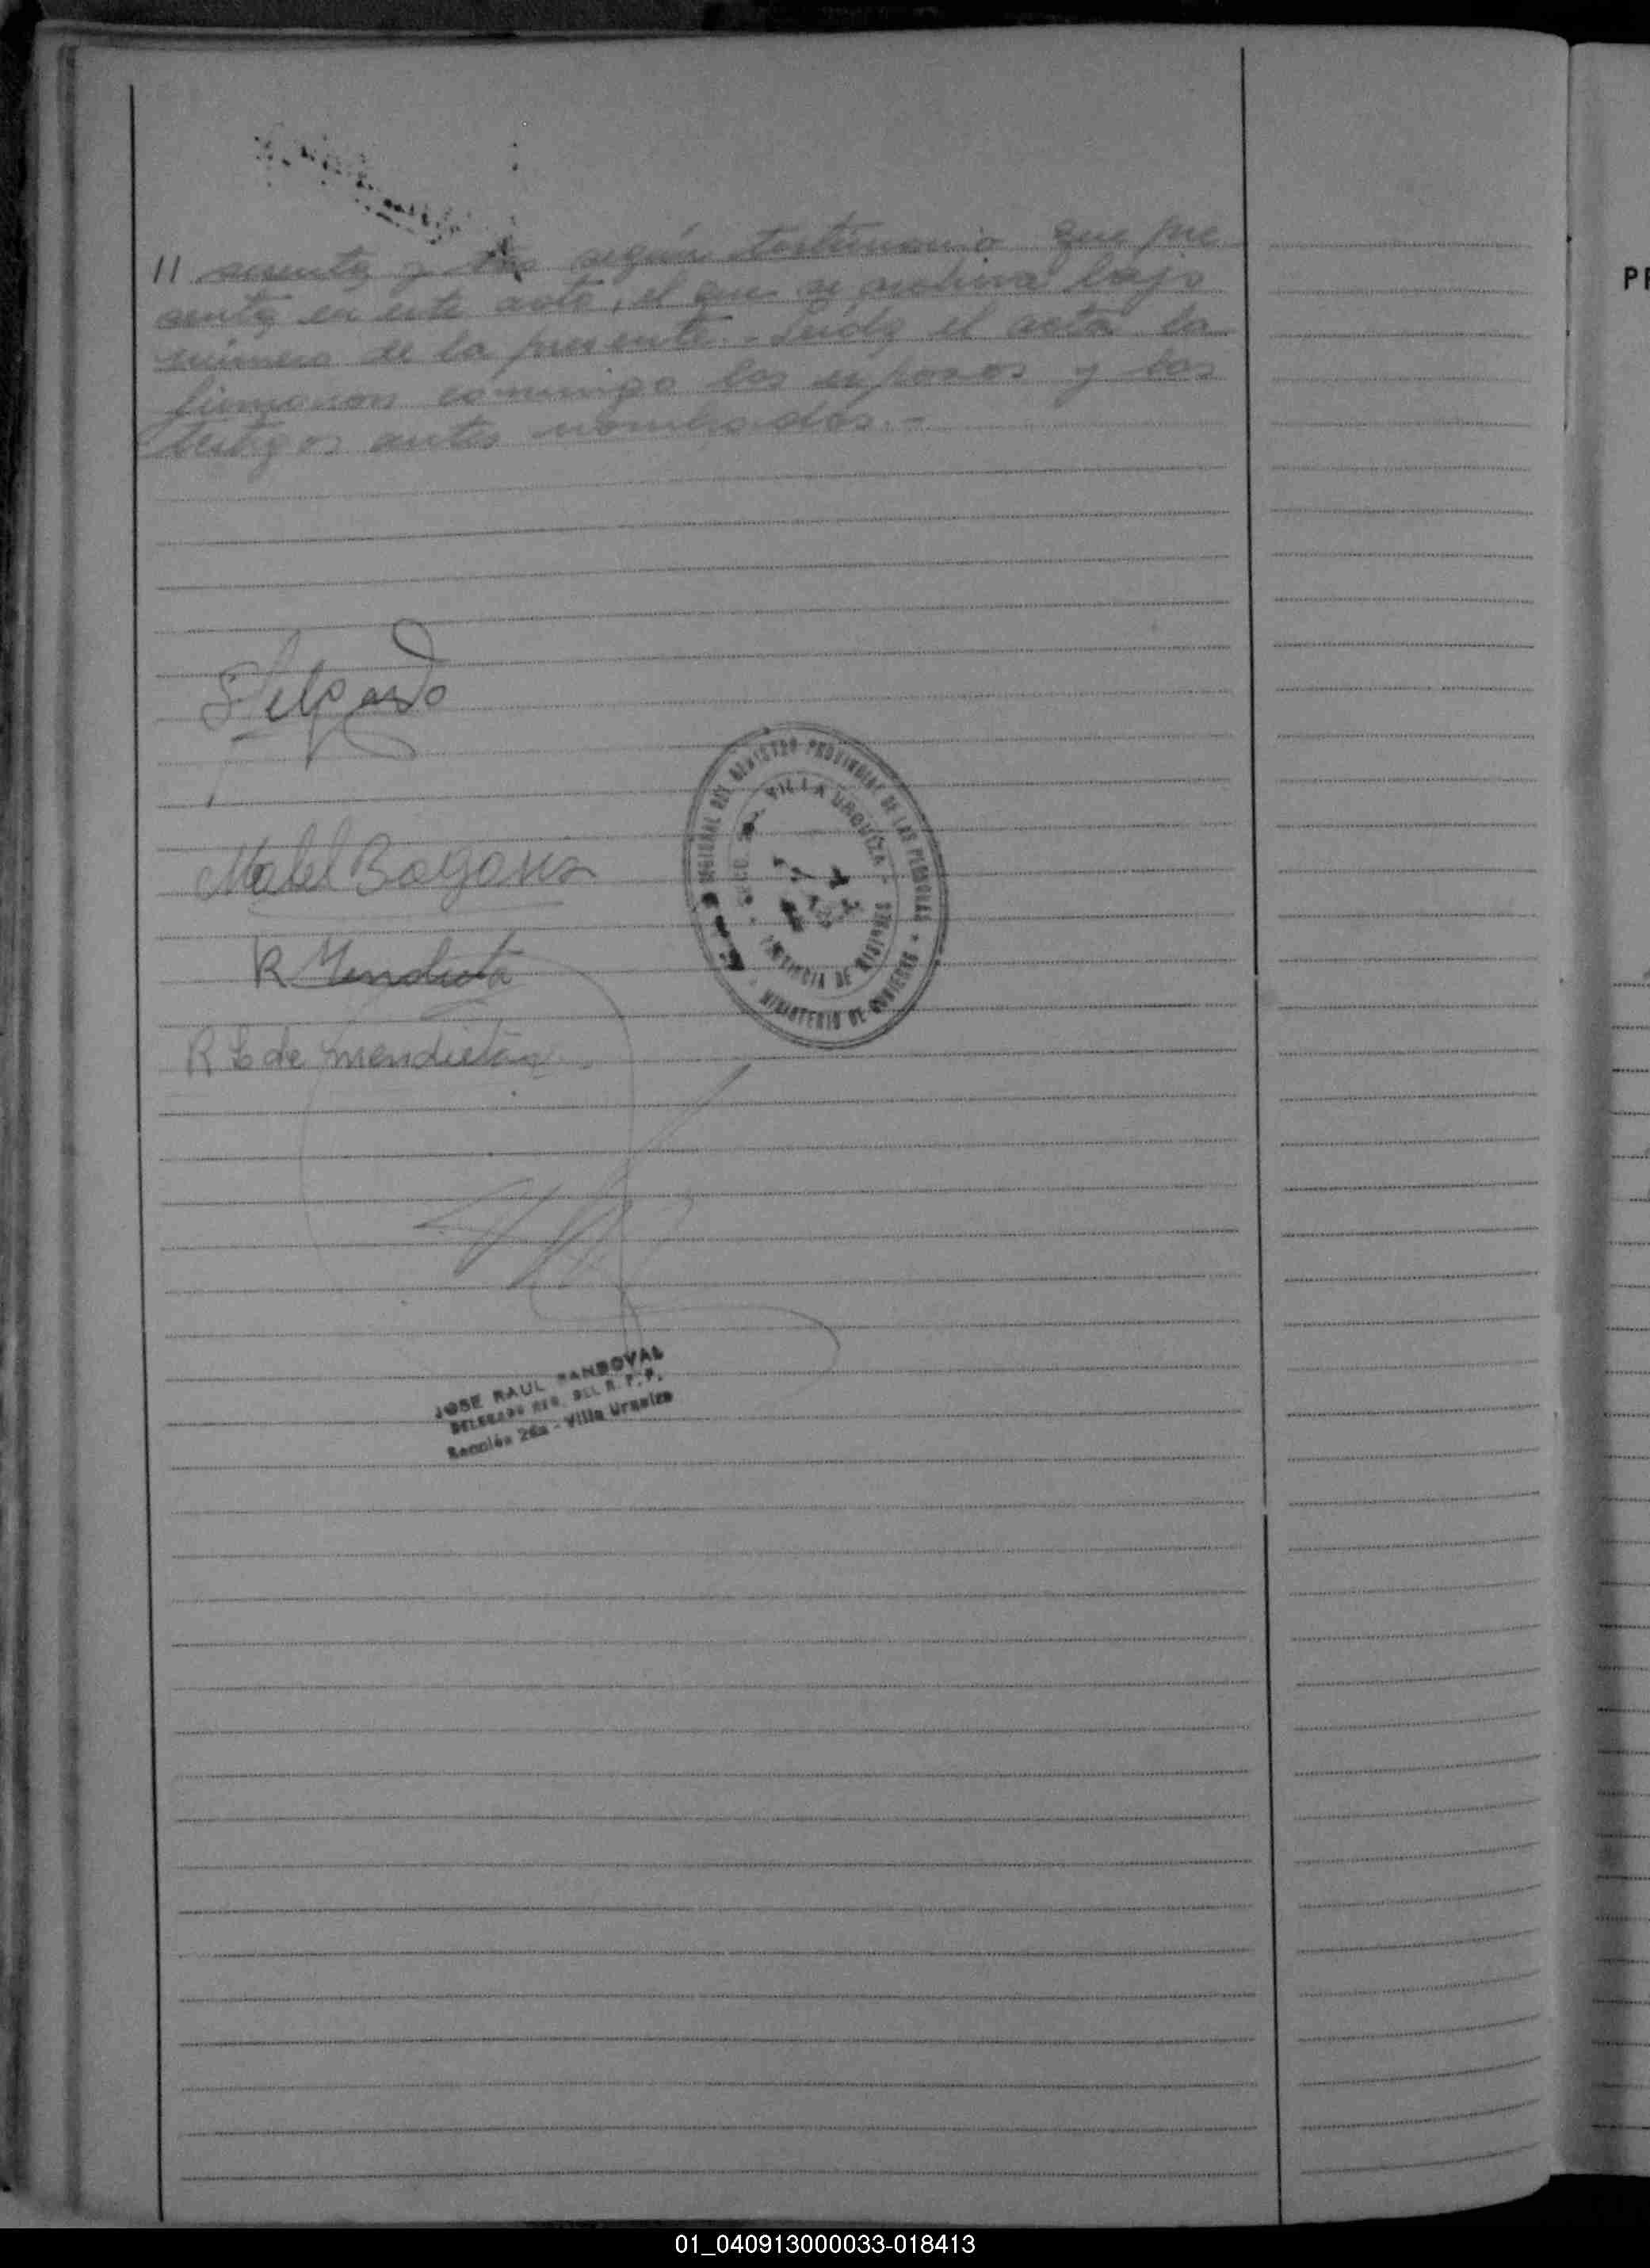 // senta y tres según testimonio que pre
senta en este acto, el que se archiva bajo
número de la presente.- Leída el acta la
firmaron conmigo los esposos y los
testigos antes nombrados.-
Delgado
Mabel
R Mendieta
R de Mendieta
REGISTRO PROVINCIAL DE LAS PERSONAS
VILLA URQUIZA
PROVINCIA DE MISIONES
MINISTERIO DE GOBIERNO
JOSE RAUL SANDOVAL
DELEGADO REG. DEL R. P. P.
Sección 26a - Villa Urquiza
PR
01_040913000033-018413